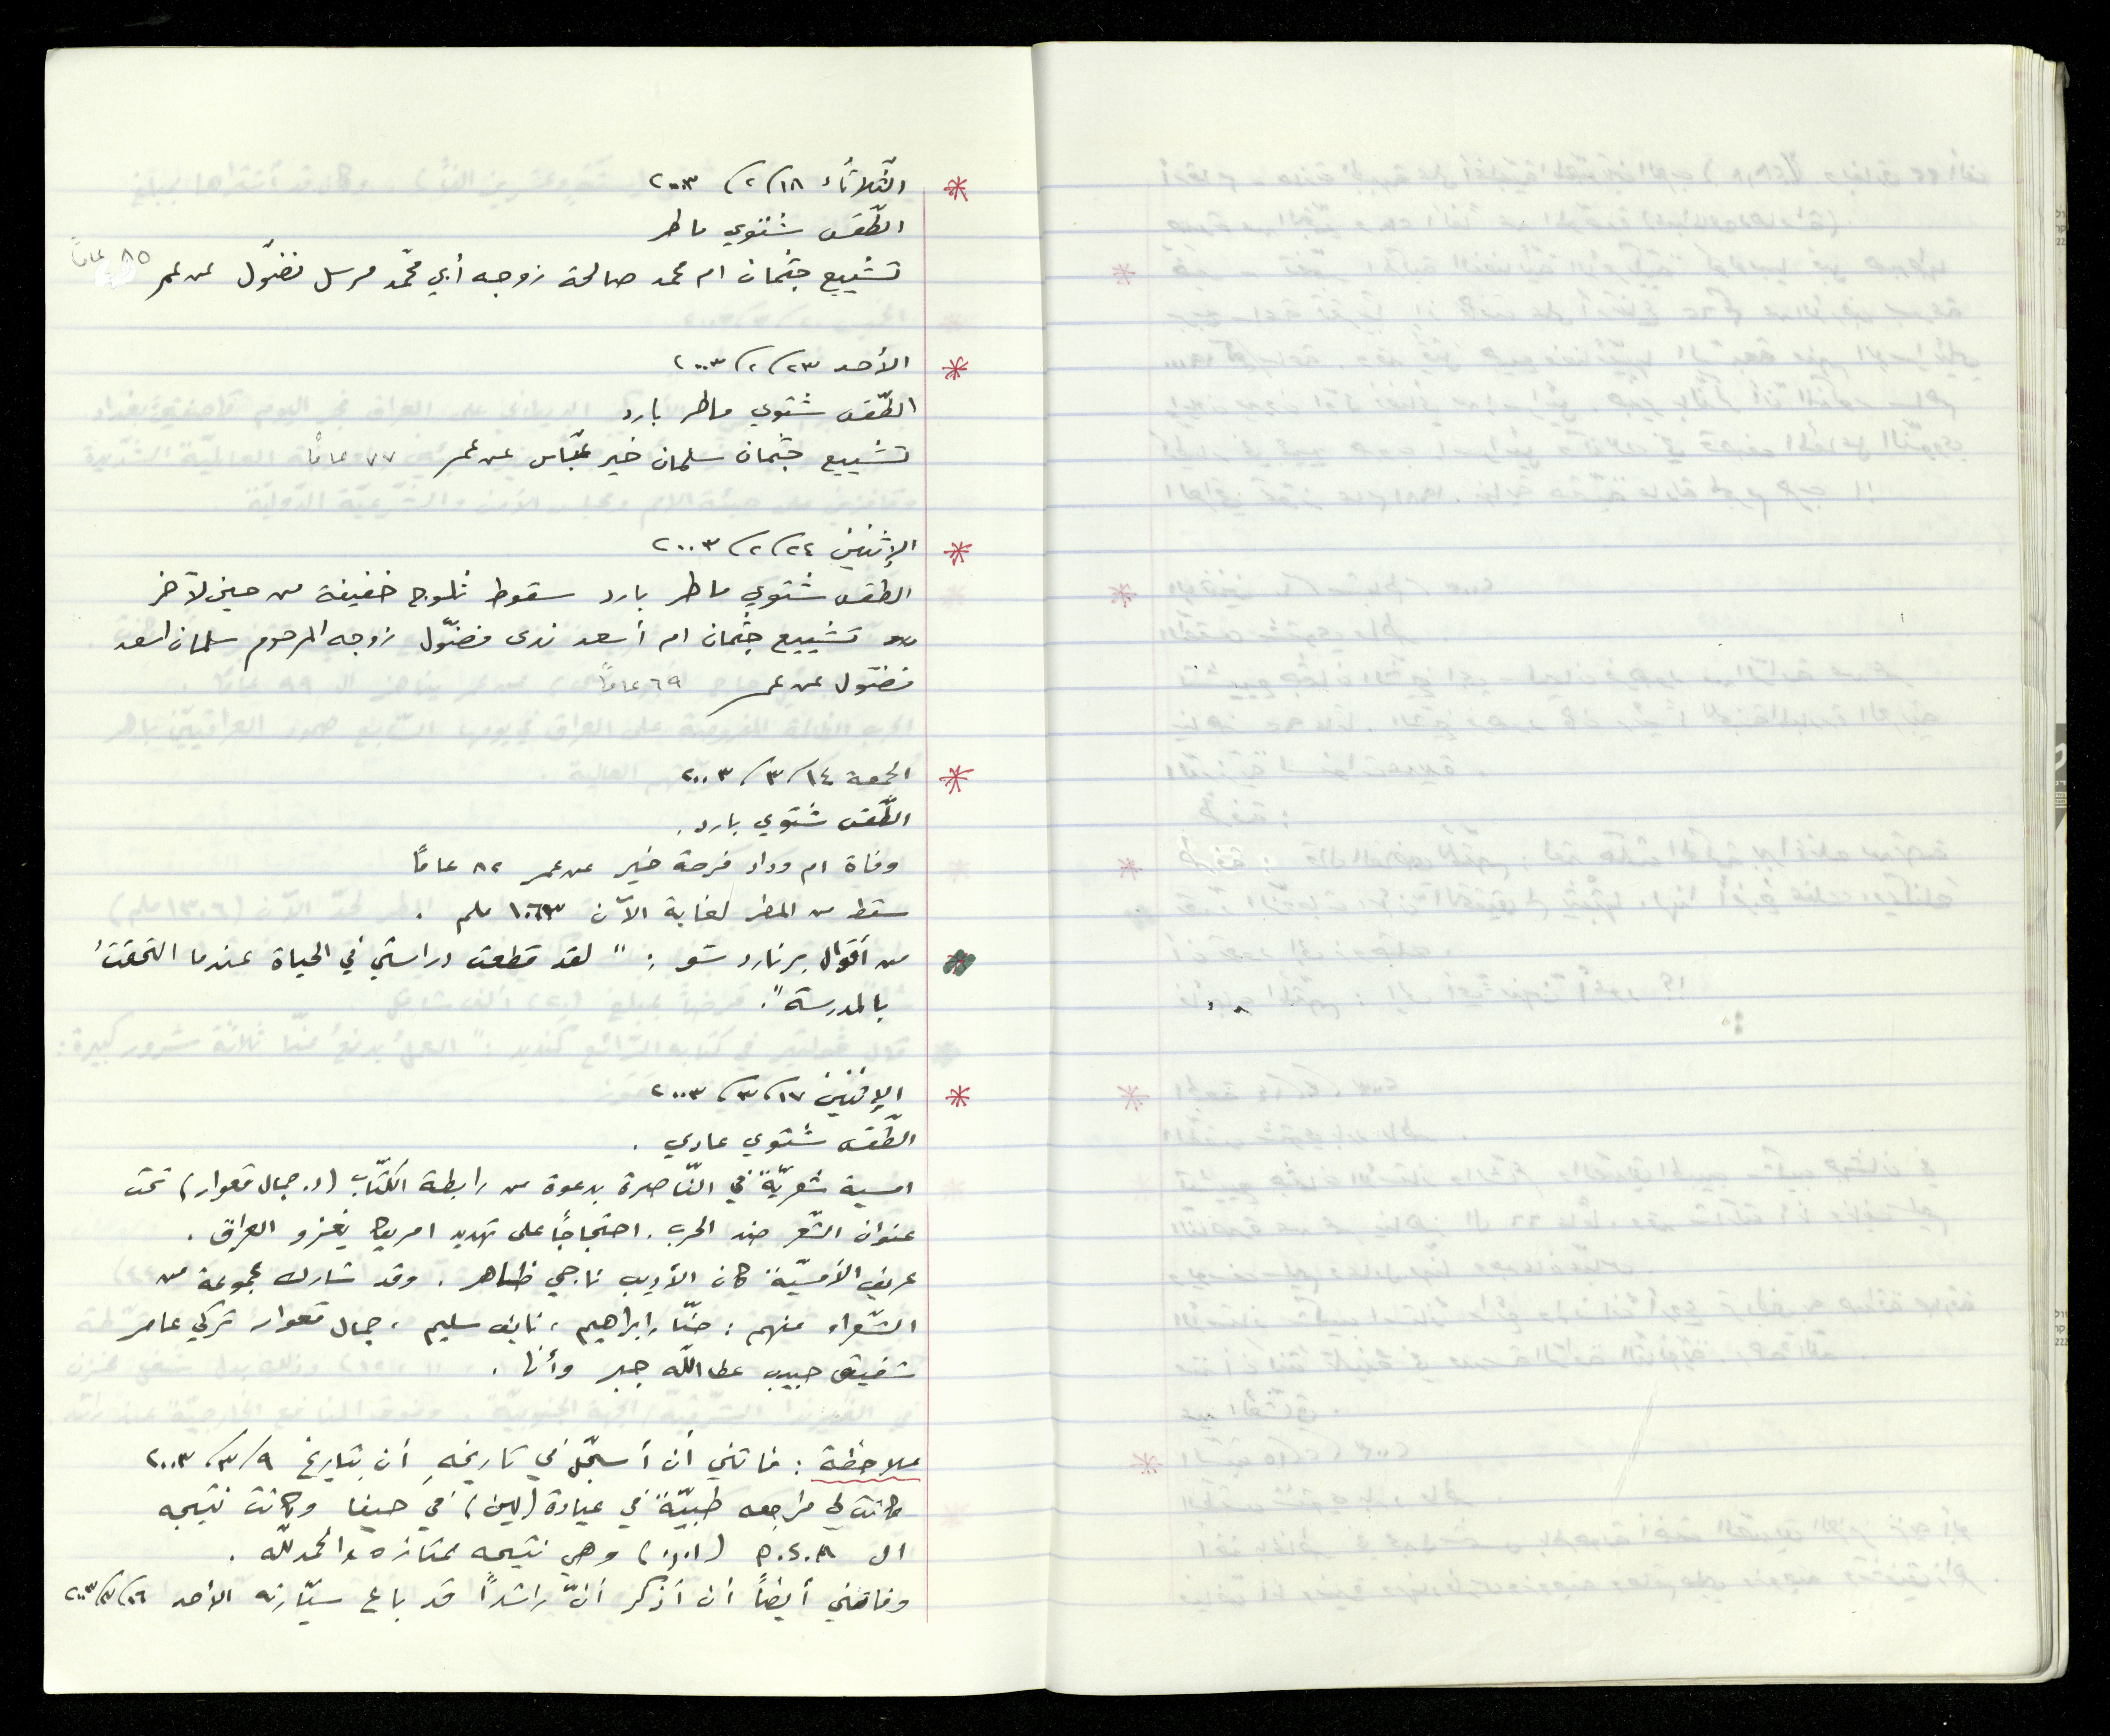 * الثّلاثاء ١٨/٢/٢٠٠٣
الطّقس شتوي ماطر
تشييع جثمان ام محمد صالحة زوجه أبي محمّد مرسل فضّول عن عمر ٨٥ عاماً
* الأحد ٢٣/٢/٢٠٠٣
الطّقس شتوي ماطر بارد
تشييع جثمان سلمان خير عبّاس عن عمر ٧٧ عاماً
* الإثنين ٢٤/٢/٢٠٠٣
الطقس شتوي ماطر بارد سقوط ثلوج خفيفة من حين لآخر
تشييع جثمان ام أسعد ندى فضّول زوجه المرحوم سلمان اسعد
فضّول عن عمر ٦٩ عاماً
* الجمعة ١٤/٣/٢٠٠٣
الطّقس شتوي بارد.
وفاة ام وداد فرحة خير عن عمر ٨٢ عاماً
سقط من المطر لغاية الآن ملم .
من أقوال برنارد شو : " لقد قطعت دراستي في الحياة عندما التحقتُ
بالمدرسة ".
* الإثنين ١٧/٣/٢٠٠٣
الطّقس شتوي عادي .
امسية شعريّة في النّاصرة بدعوة من رابطة الكتّاب (د. جمال قعوار) تحت
عنوان الشّعر ضد الحرب . احتجاجًا على تهديد امريكا بغزو العراق .
عريف الأمسيّة كان الأديب ناجي ظاهر . وقد شارك مجموعة من
الشّعراء منهم : حنّا إبراهيم ، نايف سليم ، جمال قعوار تركي عامر
شفيق حبيب عطاالله جبر وأنا .
ملاحظة : فاتني أن أسجّل في تاريخهِ أن بتاريخ ٩/٣/٢٠٠٣
كانت لي مراجعه طبيّة في عيادة (لين) في حيفا وكانت نتيجه
ال P.S.A (١،٠) وهي نتيجه ممتازه والحمدلله .
وفاتني أيضاً أن أذكر أنّ راشداً قد باع سيّارته الأحد